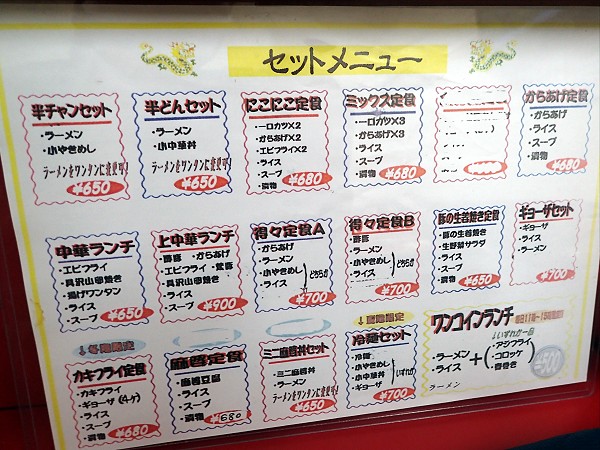 セットメニュー
半チャンセット
・ラーメン
・小やきめし
ラーメンをワンタンに変更可!
¥650
半どんセット
・ラーメン
・小中華丼
ラーメンをワンタンに変更可!
¥650
にこにこ定食
・一口カツ×2
・からあげ×2
・エビフライ×2
・ライス
・スープ
・漬物
¥680
ミックス定食
・一口カツ×3
・からあげ×3
・ライス
・スープ
・漬物
¥680
からあげ定食
・からあげ
・ライス
・スープ
・漬物
¥680
中華ランチ
・エビフライ
・具沢山卵焼き
・揚げワンタン
・ライス
・スープ
¥650
上中華ランチ
・酢豚 ・からあげ
・エビフライ
・具沢山卵焼き
・ライス
・スープ
¥900
得々定食A
・からあげ
・ラーメン
・小やきめし
・ライス
どちらか
¥700
得々定食B
・酢豚
・ラーメン
・小やきめし
・ライス
どちらか
¥700
豚の生姜焼き定食
・豚の生姜焼き
・生野菜サラダ
・ライス
・スープ
¥650
ギョーザセット
・ギョーザ
・ライス
・ラーメン
¥700
↓冬期限定
カキフライ定食
・カキフライ
・ギョーザ(4ケ)
・ライス
・スープ
・漬物
¥680
麻婆定食
・麻婆豆腐
・ライス
・スープ
・漬物
¥680
ミニ麻婆丼セット
・ミニ麻婆丼
・ラーメン
ラーメンをワンタンに変更可!
¥650
↓夏期限定
冷麺セット
・冷麺
・小やきめし
・小中華丼
・ギョーザ
いずれか
¥700
ワンコインランチ
↓いずれか一品
・ラーメン
・ライス
+
・アジフライ
・コロッケ
・春巻き
500
ラーメン